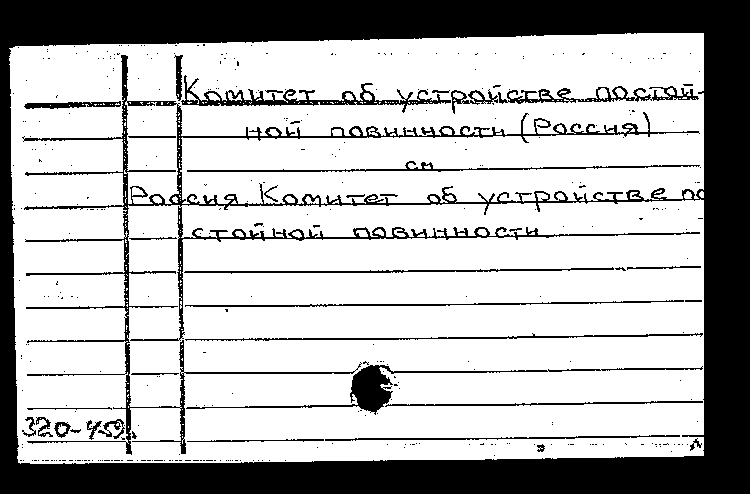 Комитет об устройстве постой-
ной повинности (Россия)
см.
Россия. Комитет об устройстве по
стойной повинности.
320-459